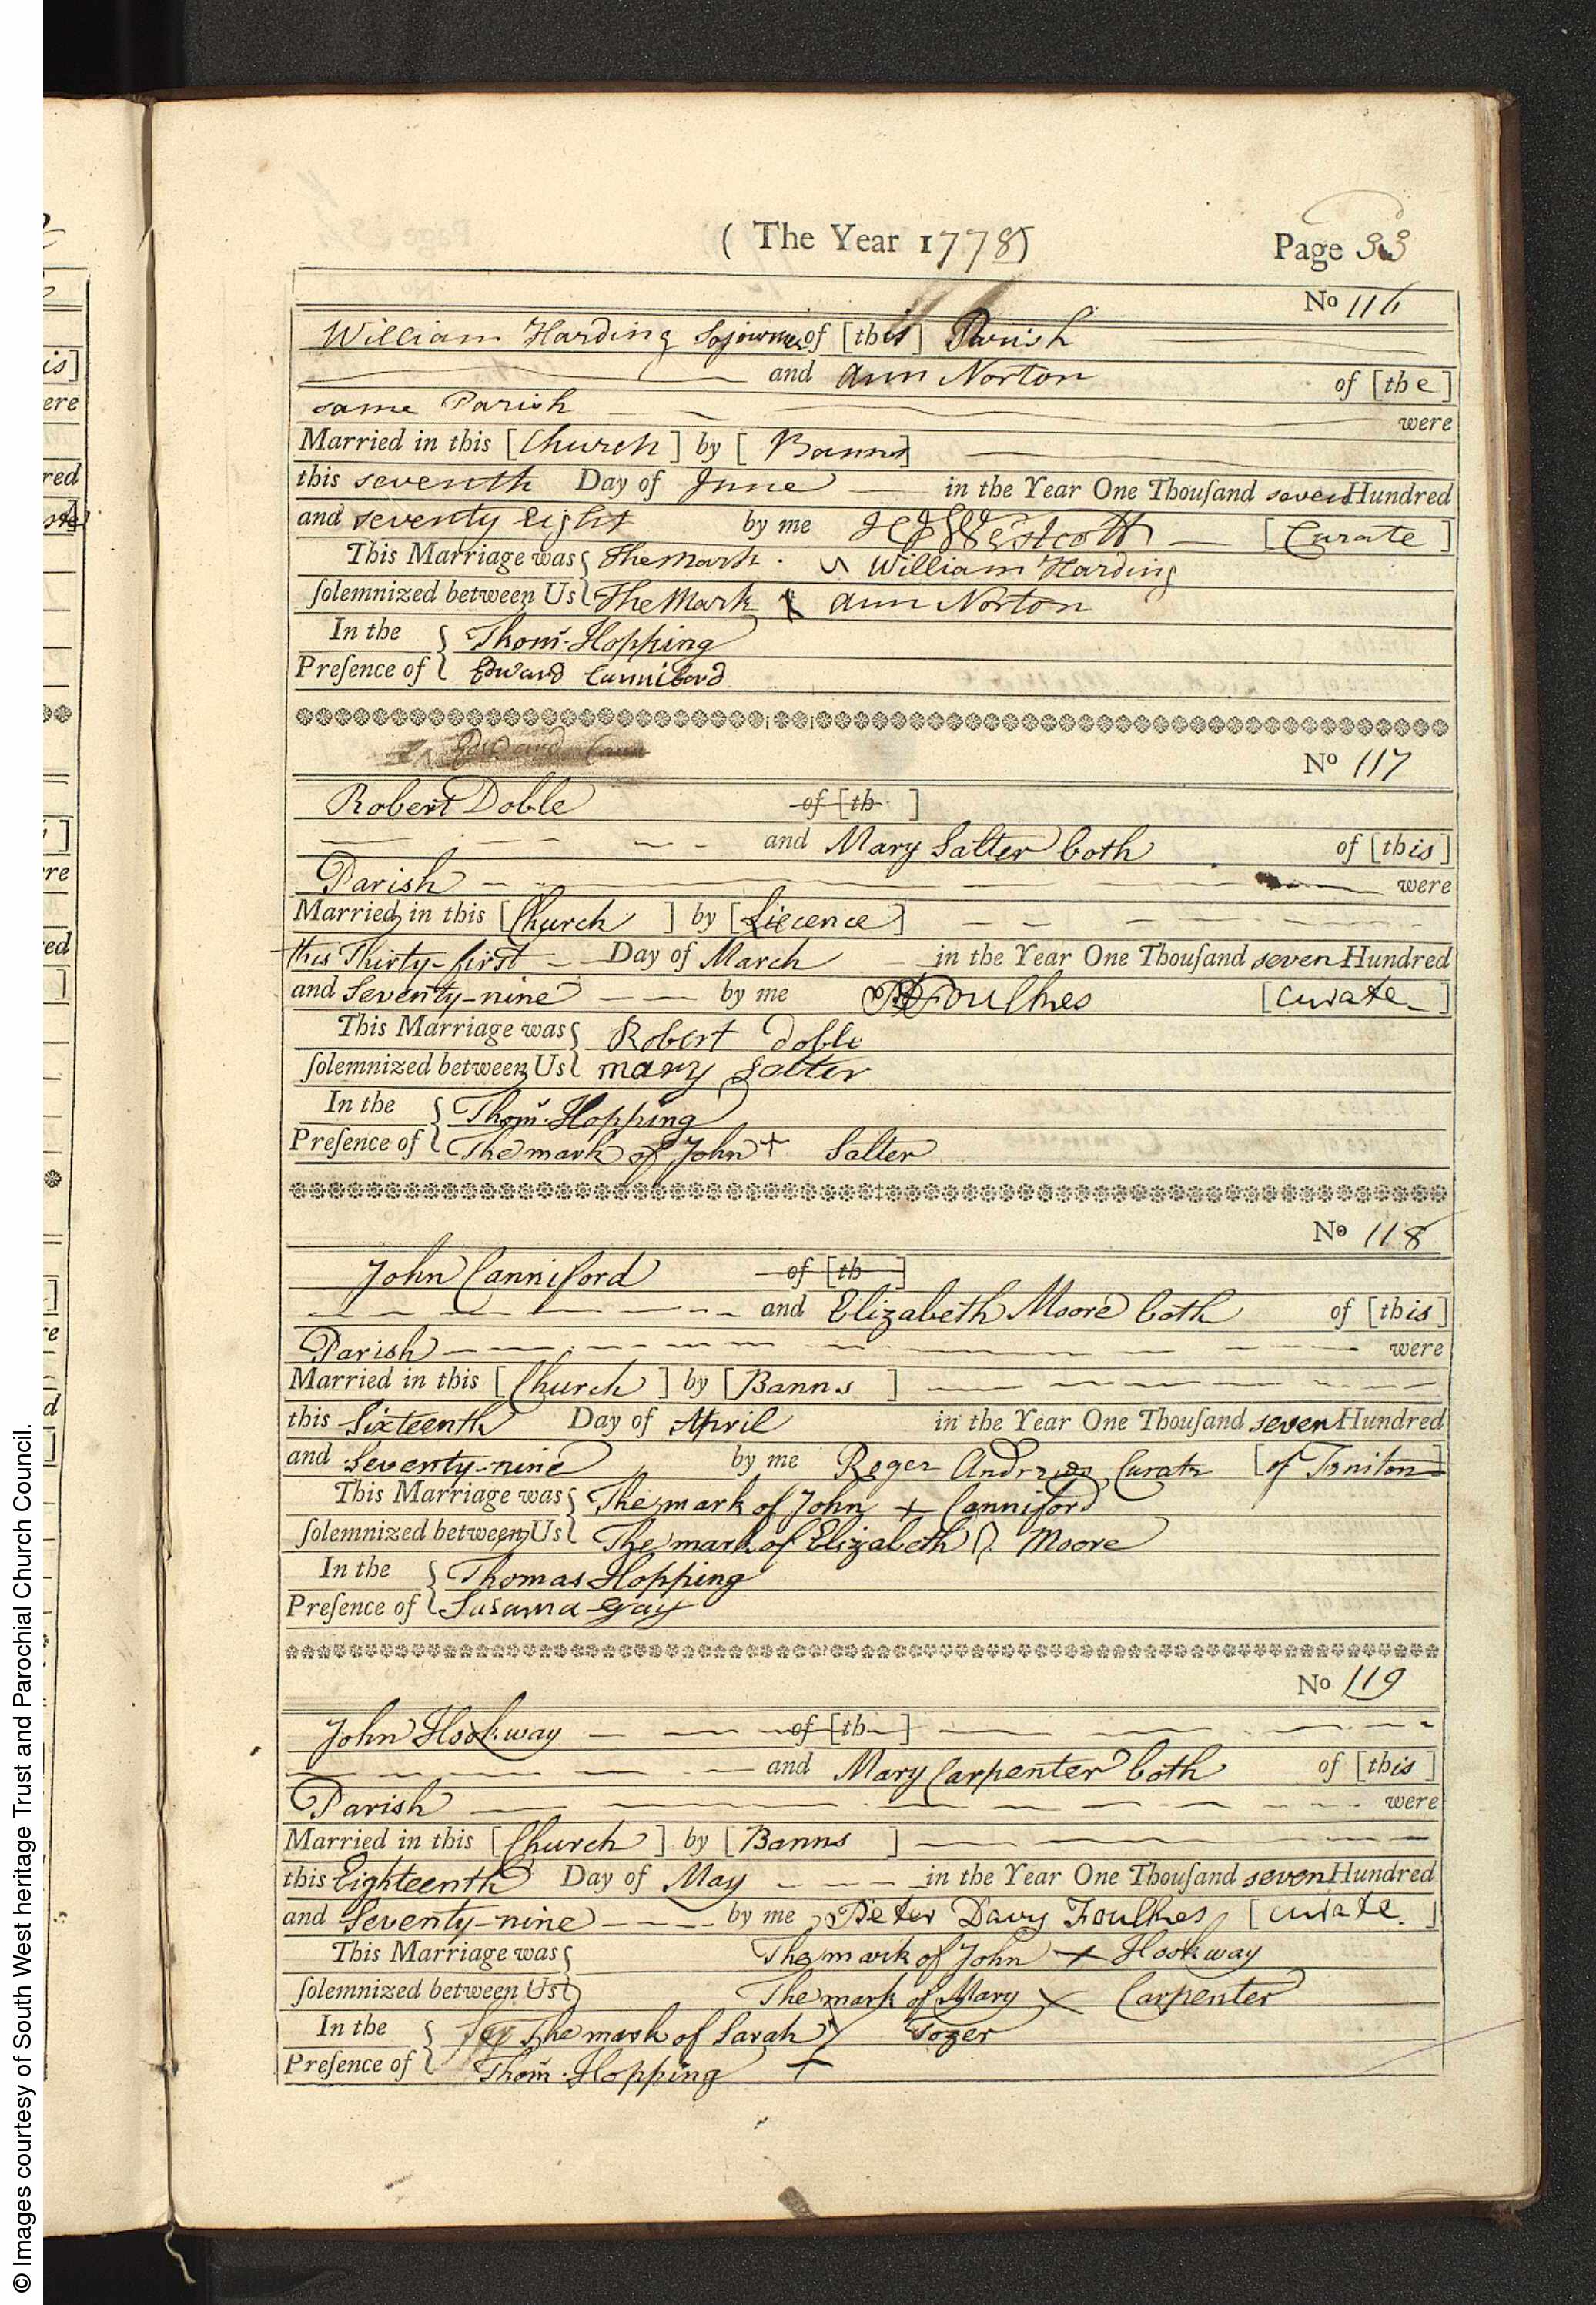 ( The Year 1778)
Page 33
No 116
William Harding Sojourner of [this] Parish
and Ann Norton of [the]
same Parish were
Married in this [Church] by [Banns]
this seventh Day of June in the Year One Thouſand seven Hundred
and seventy Eight by me Westcott [Curate]
This Marriage was The Mark William Harding
ſolemnized between Us The Mark Ann Norton
In the Thoms. Hopping
Preſence of Edward Canniford
Edward Cann
No 117
Robert Doble of [th ]
and Mary Salter both of [this]
Parish were
Married in this [Church] by [Liecence]
this Thirty-first Day of March in the Year One Thouſand seven Hundred
and Seventy-nine by me PD Foulkes [curate]
This Marriage was Robert Doble
ſolemnized between Us mary Salter
In the Thoms. Hopping
Preſence of The mark of John + Salter
No 118
John Canniford of [th ]
and Elizabeth Moore both of [this]
Parish were
Married in this [Church] by [Banns]
this Sixteenth Day of April in the Year One Thouſand seven Hundred
and Seventy-nine by me Roger Andrews Curate [of
This Marriage was The mark of John + Canniford
ſolemnized between Us The mark of Elizabeth Moore
In the Thomas Hopping
Preſence of Susanna Gay
No 119
John Hookway of [th ]
and Mary Carpenter both of [this]
Parish were
Married in this [Church] by [Banns]
this Eighteenth Day of May in the Year One Thouſand seven Hundred
and Seventy-nine by me Peter Davy Foulkes [curate]
This Marriage was The mark of John + Hookway
ſolemnized between Us The mark of Mary X Carpenter
In the The mark of Sarah Tozer
Preſence of Thoms. Hopping +
© Images courtesy of South West heritage Trust and Parochial Church Council.